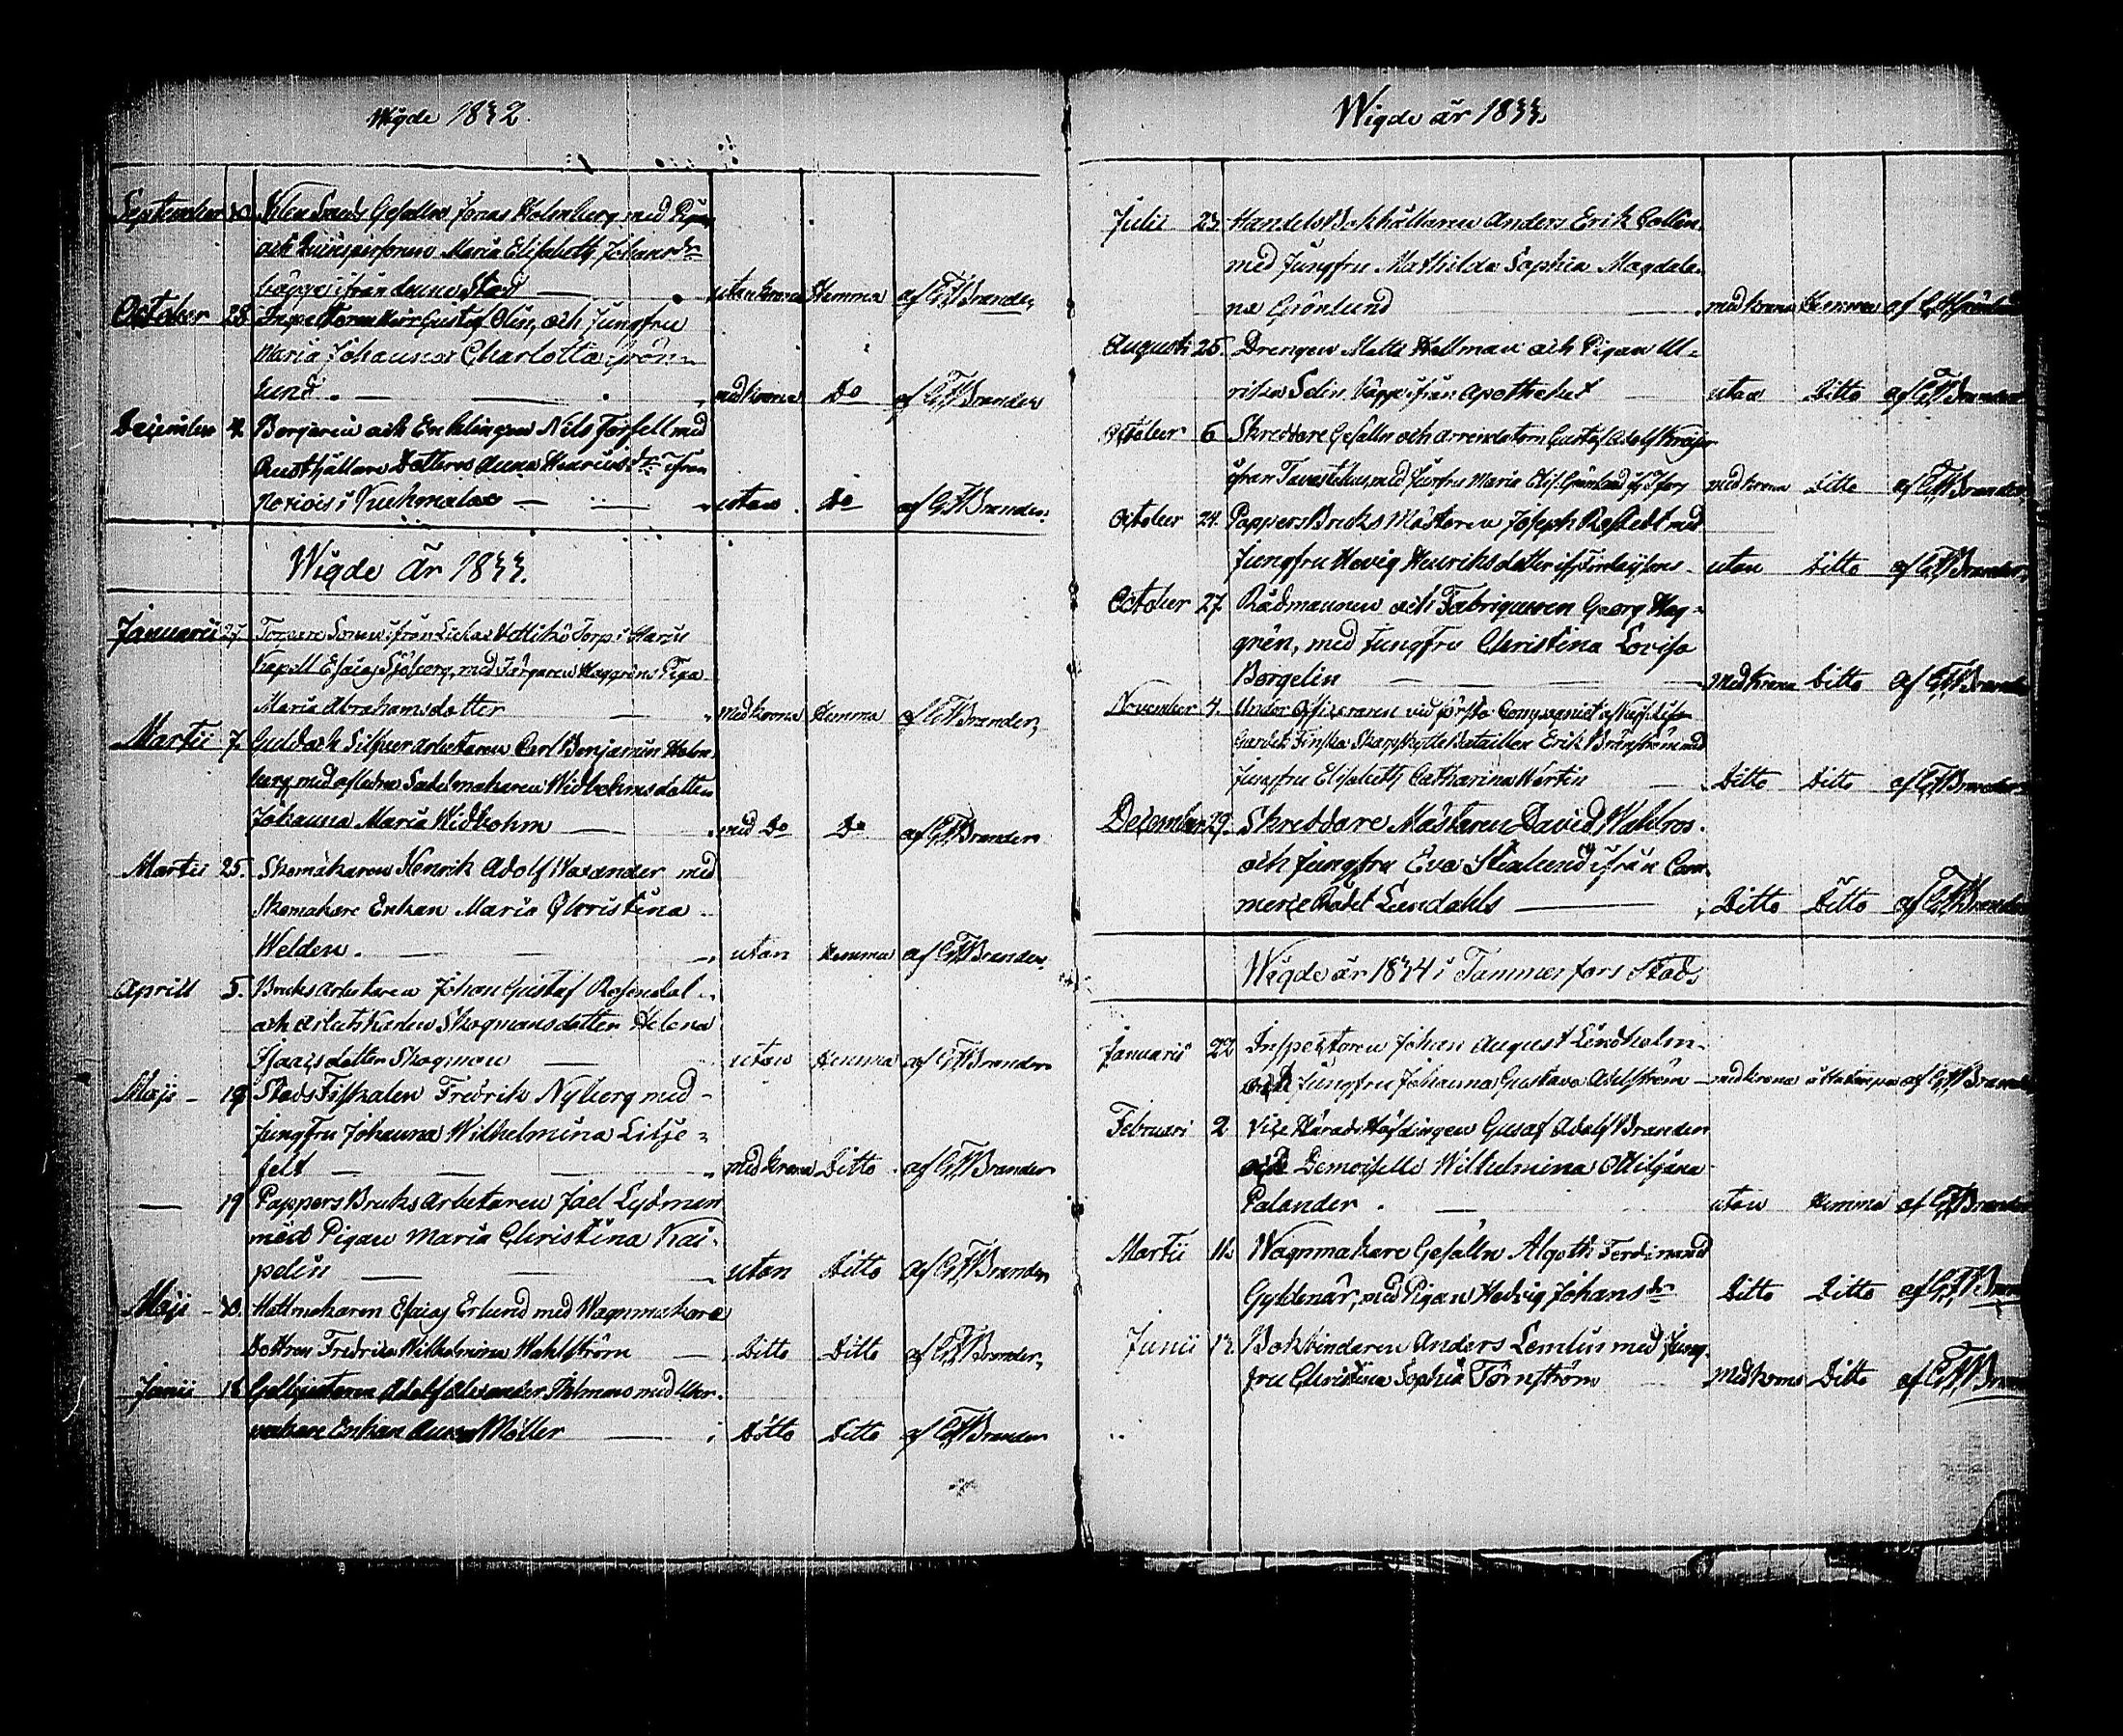 Wigde 1832.
September 30 Gesällen Jonas Holmberg med Pigan
och Maria Elisabeth Johansdr
bägge ifrån denne Stad — utan krona Hemma af G.F. Brander,
October 28 Inspectoren Herr Gustaf Olin, och Jungfru
Maria Johanna Charlotta Grön-
lund. — med krona Do af G.F. Brander
December 4. Borgaren och Enklingen Nils Forsell med
Rusthållare Dottren Anna Henricsdr ifrån
i Kuhmalax — utan Do af G.F. Brander.
Wigde År 1833.
Januarii 27. Torpare Sonen ifrån Torp i Harju
Kapell Esaias Sjöberg, med Färgaren Haggréns Piga
Maria Abrahamsdotter — med krona Hemma af G.F. Brander,
Martii 7. Guld och Silfver arbetaren Carl Benjamin Holm-
berg med afledne Sadelmakaren Widbohms dotter
Johanna Maria Widbohm — med Do Do af G.F. Brander
Martii 25. Skomakaren Henrik Adolf Wasander med
Skomakare Enkan Maria Christina
Welden. — utan Hemma af G.F. Brander,
Aprill 5. Bruks arbetaren Johan Gustaf Rosendal
och arbetskarlen Skogmans dotter Helena
Isaacsdotter Skogman — utan Hemma af G.F. Brander
Maji — 19 Stads Fiskalen Fredrik Nyberg med
Jungfru Johanna Wilhelmina Lilje-
felt — med krona Ditto af G.F. Brander
— 19 Pappers Bruks Arbetaren Joel Lydman
med Pigan Maria Christina Kai-
pelin — utan Ditto af G.F. Brander
Maji — 30. Hattmakaren Esaias Erlund med Wagnmakare
Dottren Fredrica Wilhelmina Wahlström — Ditto Ditto af G.F. Brander,
Junii 16 Gelbgjutaren Adolf Alexander med Ur-
makare Enkan Anna Möller — Ditto Ditto af G.F. Brander
Wigde år 1833.
Julii 23. Handels Bokhållaren Anders Erik Collin
med Jungfru Mathilda Sophia Magdale-
na Grönlund — med krona Hemma af
Augusti 25. Drengen Matts Hellman och Pigan Ul-
rika Selin, bägge ifrån Apotheket — utan Ditto af G.F. Brander
October 6 Skreddare Gesällen och arrendatorn Gustaf Adolf
ifrån Tavastehus, med Jungfru Maria Elis. Grönlund — med krona Ditto af G.F. Brander
October 24. Pappers Bruks Mästaren Joseph Rostedt med
Jungfru Hevig Henriksdotter if. Finlaysons — utan Ditto af G.F. Brander,
October 27 Rådmannen och Fabriqueuren Georg Hag-
grén, med Jungfru Christina Lovisa
Borgelin — Med krona Ditto af G.F. Brander
November 4. Under Officeraren vid första Compagniet af
Gardets Finska Skarpskytte Bataillon Erik Brånström med
Jungfru Elisabeth Catharina Wértin — Ditto Ditto af G.F. Brander
December 29. Skreddare Mästaren David Wahlros
och Jungfru Eva Stenlund ifrån Cam-
merie Rådet Lundahls — Ditto Ditto af G.F. Brander
Wigde år 1834 i Tammerfors Stad.
Januarii 22 Inspectoren Johan August Lindholm
och Jungfru Johanna Gustava Adelström — med krona af G.F. Brander
Februari 2 Vice Härads Höfdingen Gusaf Adolf Brander
och Demoiselle Wilhelmina Ottiljana
Palander. — utan Hemma af G.F. Brander
Martii 11. Wagnmakare Gesällen Algoth Ferdinand
Gyldenär, med Pigan Hedvig Johansdr Ditto Ditto af G.F. Brander
Junii 12 Bokbindaren Anders Lemlin med Jung-
fru Christina Sophia Törnström Med krona Ditto af G.F. Brander